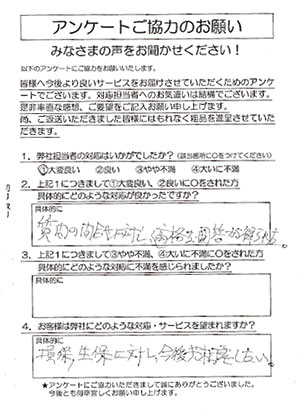 アンケートご協力のお願い
みなさまの声をお聞かせください！
以下のアンケートにご協力をお願いいたします。
皆様へ今後より良いサービスをお届けさせていただくためのアンケ
ートでございます。対応担当者へのお気遣いは結構でございます。
是非率直な感想、ご要望をご記入お願い申し上げます。
尚、ご返送いただきました皆様にはもれなく粗品を進呈させていた
だきます。
1．弊社担当者の対応はいかがでしたか？（該当箇所に○をつけてください）
①大変良い ②良い ③やや不満 ④大いに不満
2．上記1につきまして①大変良い、②良いに○をされた方
具体的にどのような対応が良かったですか？
具体的に
質問の
3．上記1につきまして③やや不満、④大いに不満に○をされた方
具体的にどのような対応に不満を感じられましたか？
具体的に
4．お客様は弊社にどのような対応・サービスを望まれますか？
具体的に
損保、生保に対し、今後共
★アンケートにご協力いただきまして誠にありがとうございました。
今後とも何卒宜しくお願い申し上げます。